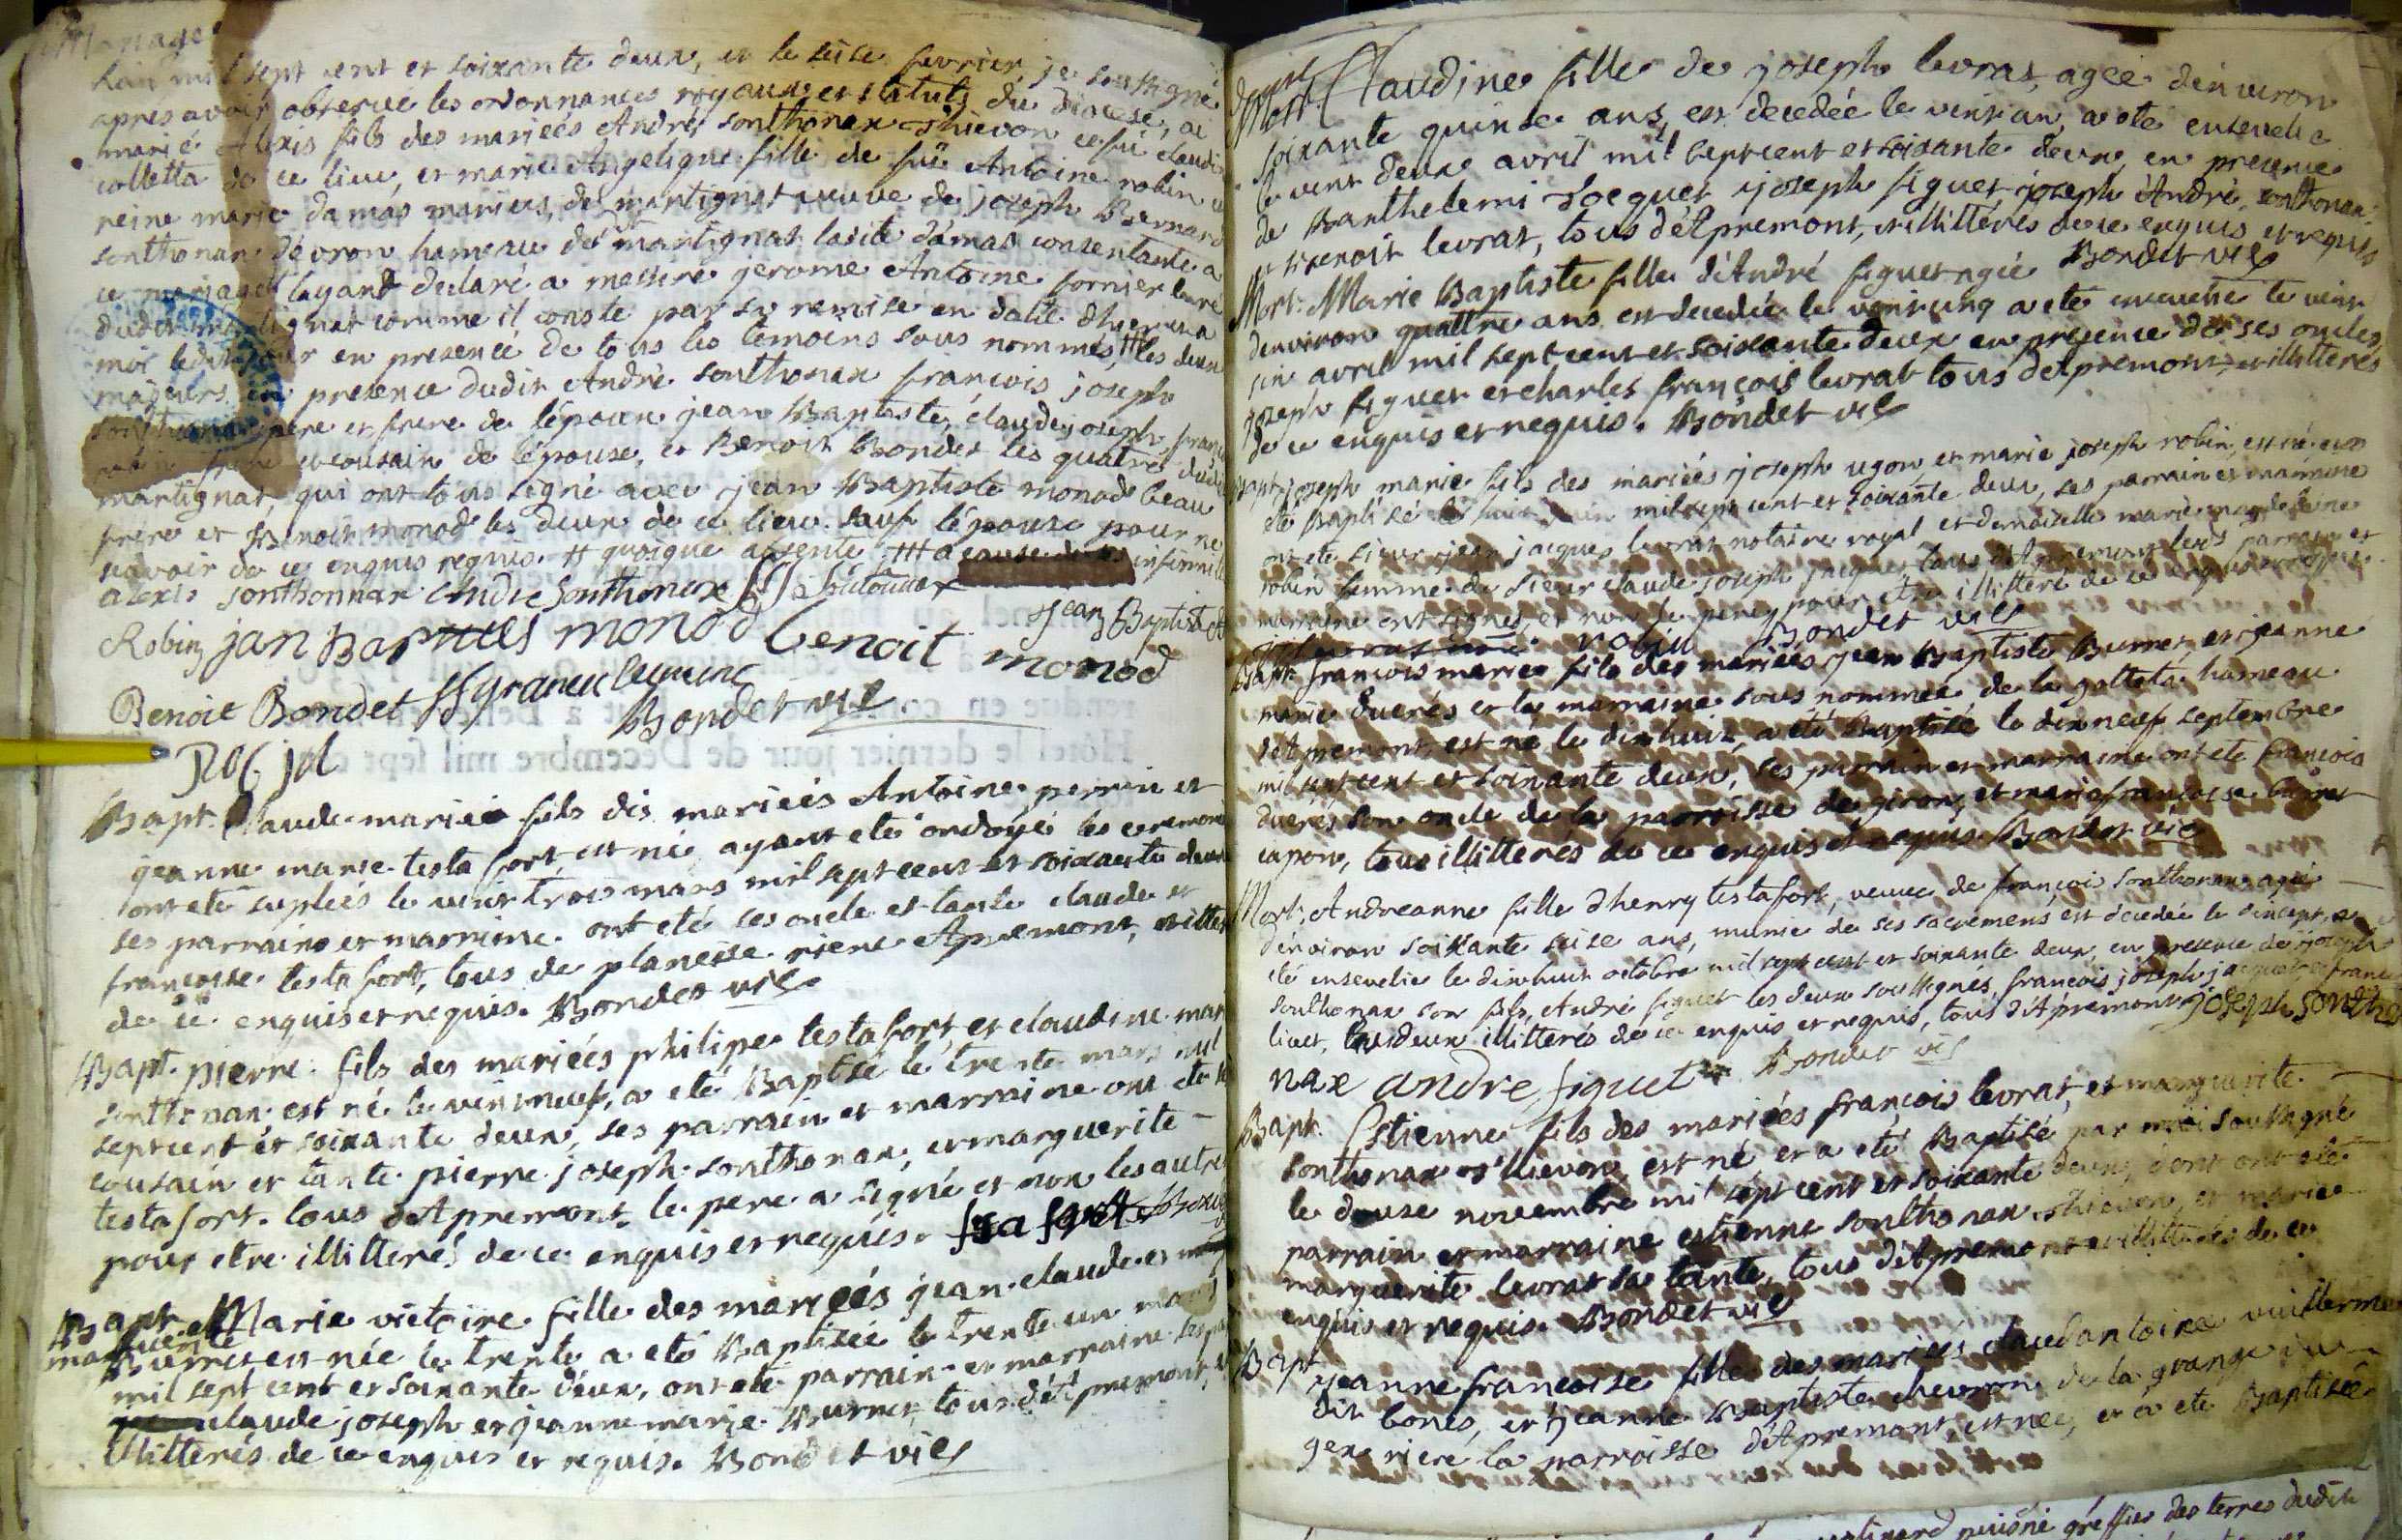 Mariage
l'an mil sept cent et soixante deux, et le seise fevrier, je soussigné
apres avoir observé les ordonnances royaux et statuts du Diocese, ai
marié Alexis fils des mariéés André sonthonax Thievon et fuë claudine
colletta de ce lieu, et marie Angelique fille de fuë Antoine robin et
reine marie damas mariéés, de martignat veuve de joseph Bernard
sonthonax d'evron hameau de martignat laditte damas consentante a
ce mariage l'ayant declaré a messire jerome Antoine fornier curé
dudit martignat comme il conste par sa remise en datte d'hyer, a
moi ledit jour en presence de tous les temoins sous nommés, les deux
majeurs. en presence dudit André sonthonax françois joseph
sonthonax pere et frere de l'époux jean Baptiste, claude joseph, franc
robin frere et cousain de l'épouse, et Benoit Bondet les quatres dudit
martignat, qui ont tous signé avec jean Baptiste monod beau
frere et Benoit monod les deux de ce lieu. sauf l'épouse pour ne
sçavoir de ce enquis requis. # quoique absente, ## a cause de ses infirmité
alexis sonthonnax André Sonthonax ff Sontonax
Robin jan Baptites monod benoit monod jean Baptiste
Benoit Bondet
Bondet vic
Bapt. Claude-marie fils des mariéés Antoine perrin et
jeanne marie testa fort, est né, ayant eté ondoyé les ceremoni
ont eté supléés le vint trois mars mil sept cens et soixante deux
ses parrains et marraine ont eté ses oncle et tante claude et
françoise testa fort, tous de planeise riere Apremont, illitter
de ce enquis et requis. Bondet vic
Bapt. pierre fils des mariéés philipe testa fort, et claudine mar
sonthonax est né le vintneuf, a eté Baptisé le trente mars mil
septcent et soixante deux, ses parrain et marraine ont eté
cousain et tante pierre joseph sonthonax, et marguerite
testa fort. tous d'Apremont. le pere a signé et non les autre
pour etre illitterés de ce enquis et requis. testa fort Bondet
Bapt. Marie victoire fille des mariéés jean claude et
marguerite Burnet est née le trente a eté Baptisée le trente un mars
mil sept cent et soixante deux, ont eté parrain et marraine
claude joseph et jeanne marie Burnet tous d'Apremont,
illitterés de ce enquis et requis. Bondet vic
Mort Claudine fille de joseph levrat, agée d'environ
soixante quinse ans, est decedée le vint un, a eté ensevelie
le vint deux avril mil sept cent et soixante deux, en presence
de Barthelemi Jocquet joseph figuet joseph André sonthonax
et Benoit levrat, tous d'Apremont, et illitterés de ce enquis et requis
Bondet vic
Mort. Marie Baptiste fille d'André figuet agée
d'environ quattre ans est decedée le vintcinq a eté ensevelie le vint
six avril mil sept cent et soixante deux en presence de ses oncles
joseph figuet et charles françois levrat tous d'Apremont, et illitterés
de ce enquis et requis. Bondet vic
Bapt. joseph marie fils des mariéés joseph ugon et marie joseph robin, est né, et a
eté Baptisé le huit juin mil sept cent et soixante deux, ses parrain et marraine
ont eté sieur jean jacques levrat notaire royal et demoiselle marie magdeleine
robin femme du sieur claude joseph jacquet tous d'Apremont les parrain et
marraine ont signés, et non le pere pour etre illitteré de ce enquis et requis.
robin Bondet vic
Bapt. françois marie fils des mariéés jean Baptiste Burnet, et jeanne
marie duerés et la marraine sous nommée de la gotteta hameau
d'Apremont, est né le dixhuit, a eté Baptisé le dixneuf septembre
mil sept cent et soixante deux, ses parrain et marraine ont eté françois
duerés son oncle de la parroisse de giron, et marie françoise burnet
capon, tous illitterés de ce enquis et requis. Bondet vic
Mort. Andreanne fille d'henry testafort, veuve de françois sonthonax agée
d'environ soixante seise ans, munie de ses sacremens est decedée le dixsept, a
eté ensevelie le dixhuit octobre mil sept cent et soixante deux, en presence de joseph
sonthonax son fils, André figuet les deux soussignés, françois joseph jacquet et franc
livet, les deux illitterés de ce enquis et requis, tous d'Apremont joseph sontho
nax andre figuet Bondet vic
Bapt. Estienne fils des mariéés françois levrat, et marguerite
sonthonax thievon, est né, et a eté Baptisé par moi soussigné
le douse novembre mil sept cent et soixante deux, dont ont eté
parrain et marraine estienne sonthonax thievon, et marie
marguerite levrat sa tante, tous d'Apremont et illitterés de ce
enquis et requis. Bondet vic
Bapt. jeanne françoise fille des mariéés claud antoine vuillerme
dit bonés, et jeanne Baptiste chevron de la grange du
gex riere la parroisse d'Apremont, est née, et a eté Baptisée
greffier des terres dudit